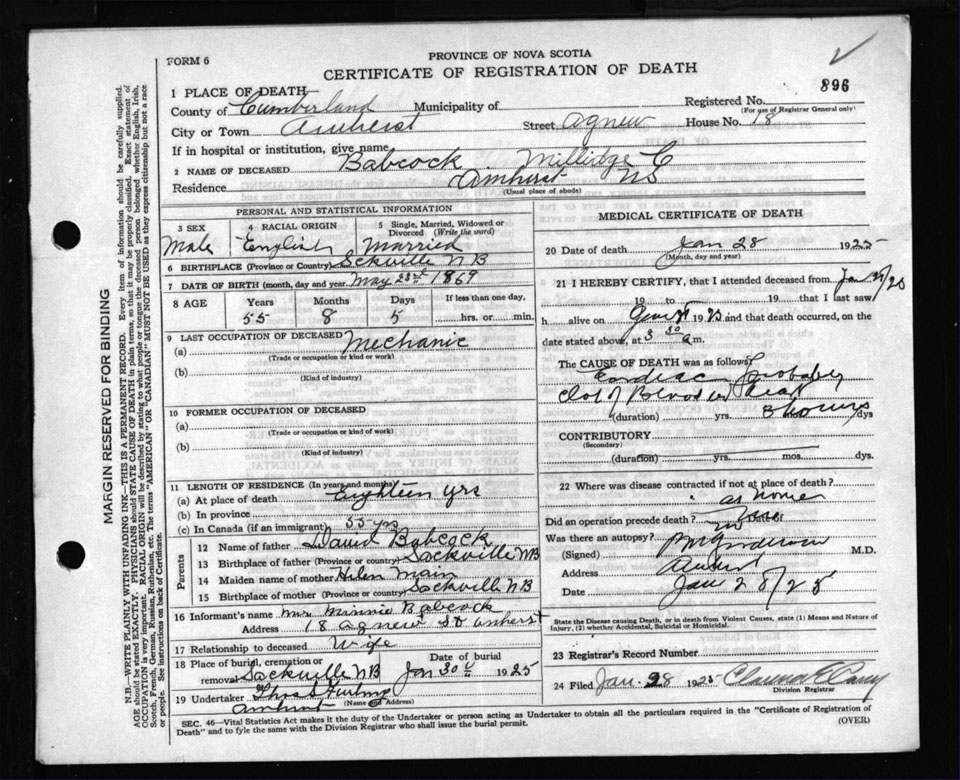 PROVINCE OF NOVA SCOTIA
FORM 6
CERTIFICATE OF REGISTRATION OF DEATH
896
1 PLACE OF DEATH
County of Cumberland Municipality of Registered No.
(For use of Registrar General only)
City or Town Amherst Street Agnew House No. 18
If in hospital or institution, give name
2 NAME OF DECEASED Babcock Millidge C
Residence Amherst NS
(Usual place of abode)
PERSONAL AND STATISTICAL INFORMATION
3 SEX 4 RACIAL ORIGIN 5 Single, Married, Widowed or Divorced (Write the word)
Male English Married
6 BIRTHPLACE (Province or Country) Sckville NB
7 DATE OF BIRTH (month, day and year) May 23rd 1869
8 AGE Years Months Days If less than one day,
55 8 5 hrs. or min.
9 LAST OCCUPATION OF DECEASED
(a) Mechanic
(Trade or occupation or kind or work)
(b)
(Kind of industry)
10 FORMER OCCUPATION OF DECEASED
(a)
(Trade or occupation or kind of work)
(b)
(Kind of industry)
11 LENGTH OF RESIDENCE (In years and months)
(a) At place of death Eighteen yrs
(b) In province
(c) In Canada (if an immigrant) 55 yrs
Parents
12 Name of father David Babcock
13 Birthplace of father (Province or Country) Sackville NB
14 Maiden name of mother Helen Main
15 Birthplace of mother (Province or country) Sackville NB
16 Informant's name Mrs Minnie Babcock
Address 18 Agnew St Amherst
17 Relationship to deceased Wife
18 Place of burial, cremation or removal Sackville NB Date of burial Jan 30 1925
19 Undertaker
(Name and Address)
Amherst
MEDICAL CERTIFICATE OF DEATH
20 Date of death Jan 28 1925
(Month, day and year)
21 I HEREBY CERTIFY, that I attended deceased from
19 to 19 that I last saw
h alive on 19 and that death occurred, on
date stated above, at 3 30 a m.
The CAUSE OF DEATH was as follows
Cardiac probably
Clot of Blood in heart
(duration) yrs. 3 hours dys
CONTRIBUTORY
(Secondary)
(duration) yrs. mos. dys.
22 Where disease contracted if not at place of death?
at home
Did an operation precede death? no Date of
Was there an autopsy?
(Signed) M.D.
Address Amherst
Date Jan 28/25
State the Disease causing Death, or in death from Violent Causes, state (1) Means and Nature of Injury, (2) whether Accidental, Suicidal or Homicidal.
23 Registrar's Record Number
24 Filed Jan. 28 1925
Division Registrar
SEC. 46—Vital Statistics Act makes it the duty of the Undertaker or person acting as Undertaker to obtain all the particulars required in the "Certificate of Registration of
Death" and to fyle the same with the Division Registrar who shall issue the burial permit. (OVER)
MARGIN RESERVED FOR BINDING
N.B.—WRITE PLAINLY WITH UNFADING INK—THIS IS A PERMANENT RECORD. Every item of information should be carefully supplied.
AGE should be stated EXACTLY. PHYSICIANS should STATE CAUSE OF DEATH in plain terms, so that it may be properly classified. Exact statement of
OCCUPATION is very important. RACIAL ORIGIN will be described by stating to what people or tongue the deceased person belonged whether English, Irish,
Scotch, French, German, Russian, Ruthenian, etc. The terms "AMERICAN" OR "CANADIAN" MUST NOT BE USED as they express citizenship but not a race
or people. See instructions on back of Certificate.